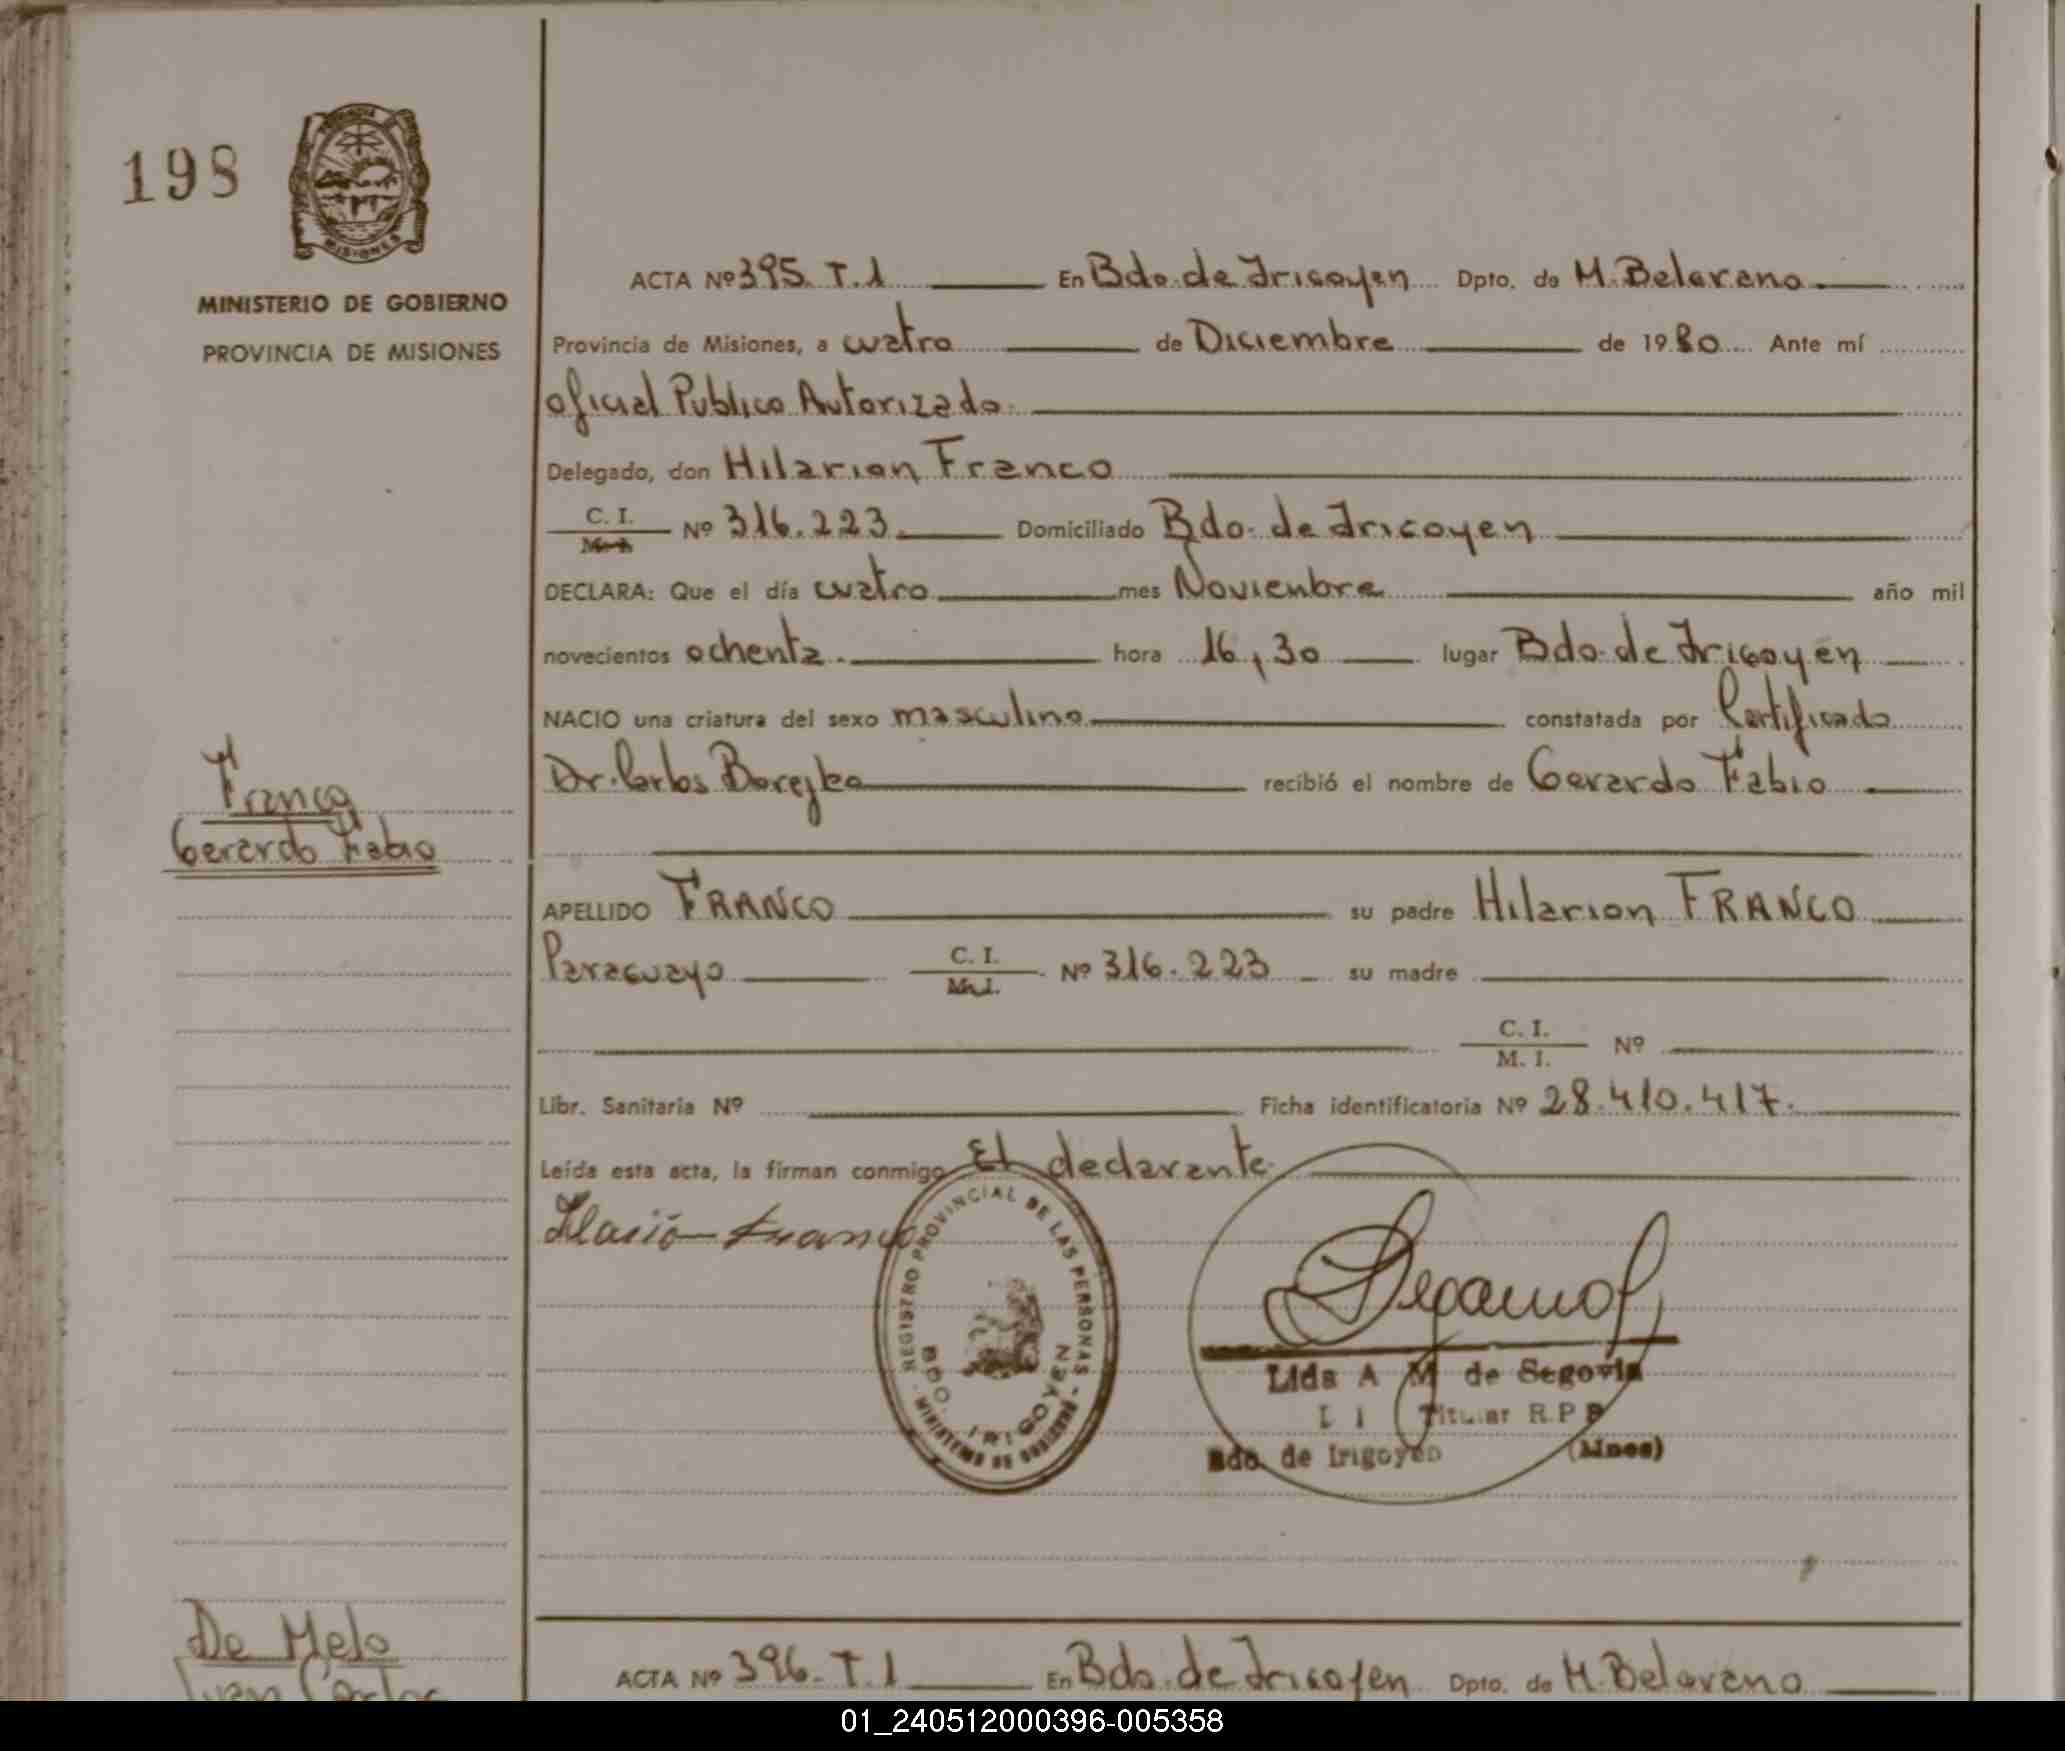 198
PROVINCIA
MISIONES
MINISTERIO DE GOBIERNO
PROVINCIA DE MISIONES
ACTA Nº 395. T.1 En Bdo. de Irigoyen Dpto. de M. Belgrano
Provincia de Misiones, a cuatro de Diciembre de 1980 Ante mí
oficial Publico Autorizado
Delegado, don Hilarion Franco
C. I.
M. I. Nº 316.223. Domiciliado Bdo. de Irigoyen
DECLARA: Que el día cuatro mes Noviembre año mil
novecientos ochenta. hora 16,30 lugar Bdo. de Irigoyen
NACIO una criatura del sexo masculino constatada por Certificado
Dr. Carlos Borejko recibió el nombre de Gerardo Fabio
Franco
Gerardo Fabio
APELLIDO FRANCO su padre Hilarion FRANCO
Paraguayo C. I.
M. I. Nº 316.223 su madre
C. I.
M. I. Nº
Libr. Sanitaria Nº Ficha identificatoria Nº 28.410.417.
Leída esta acta, la firman conmigo El declarante
Hilarión Franco
REGISTRO PROVINCIAL DE LAS PERSONAS - MINISTERIO DE GOBIERNO
BDO. IRIGOYEN
Lida A M de Segovia
Titular R.P.P
Bdo. de Irigoyen (Mnes)
De Melo
Juan Carlos
ACTA Nº 396. T.1 En Bdo. de Irigoyen Dpto. de M. Belgrano
01_240512000396-005358